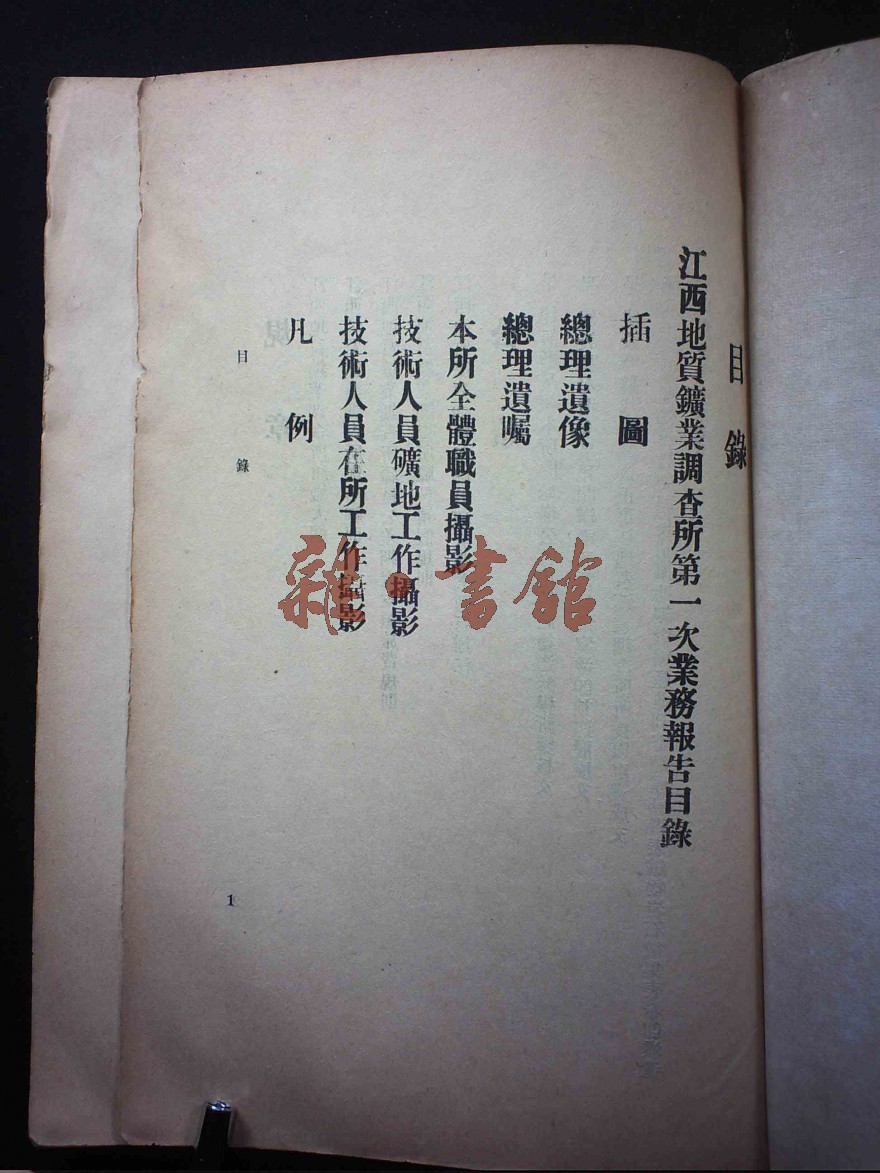 目錄
江西地質鑛業調查所第一次業務報告目錄
插圖
總理遺像
總理遺囑
本所全體職員攝影
技術人員礦地工作攝影
技術人員在所工作攝影
凡例
目錄
1
雜·書館